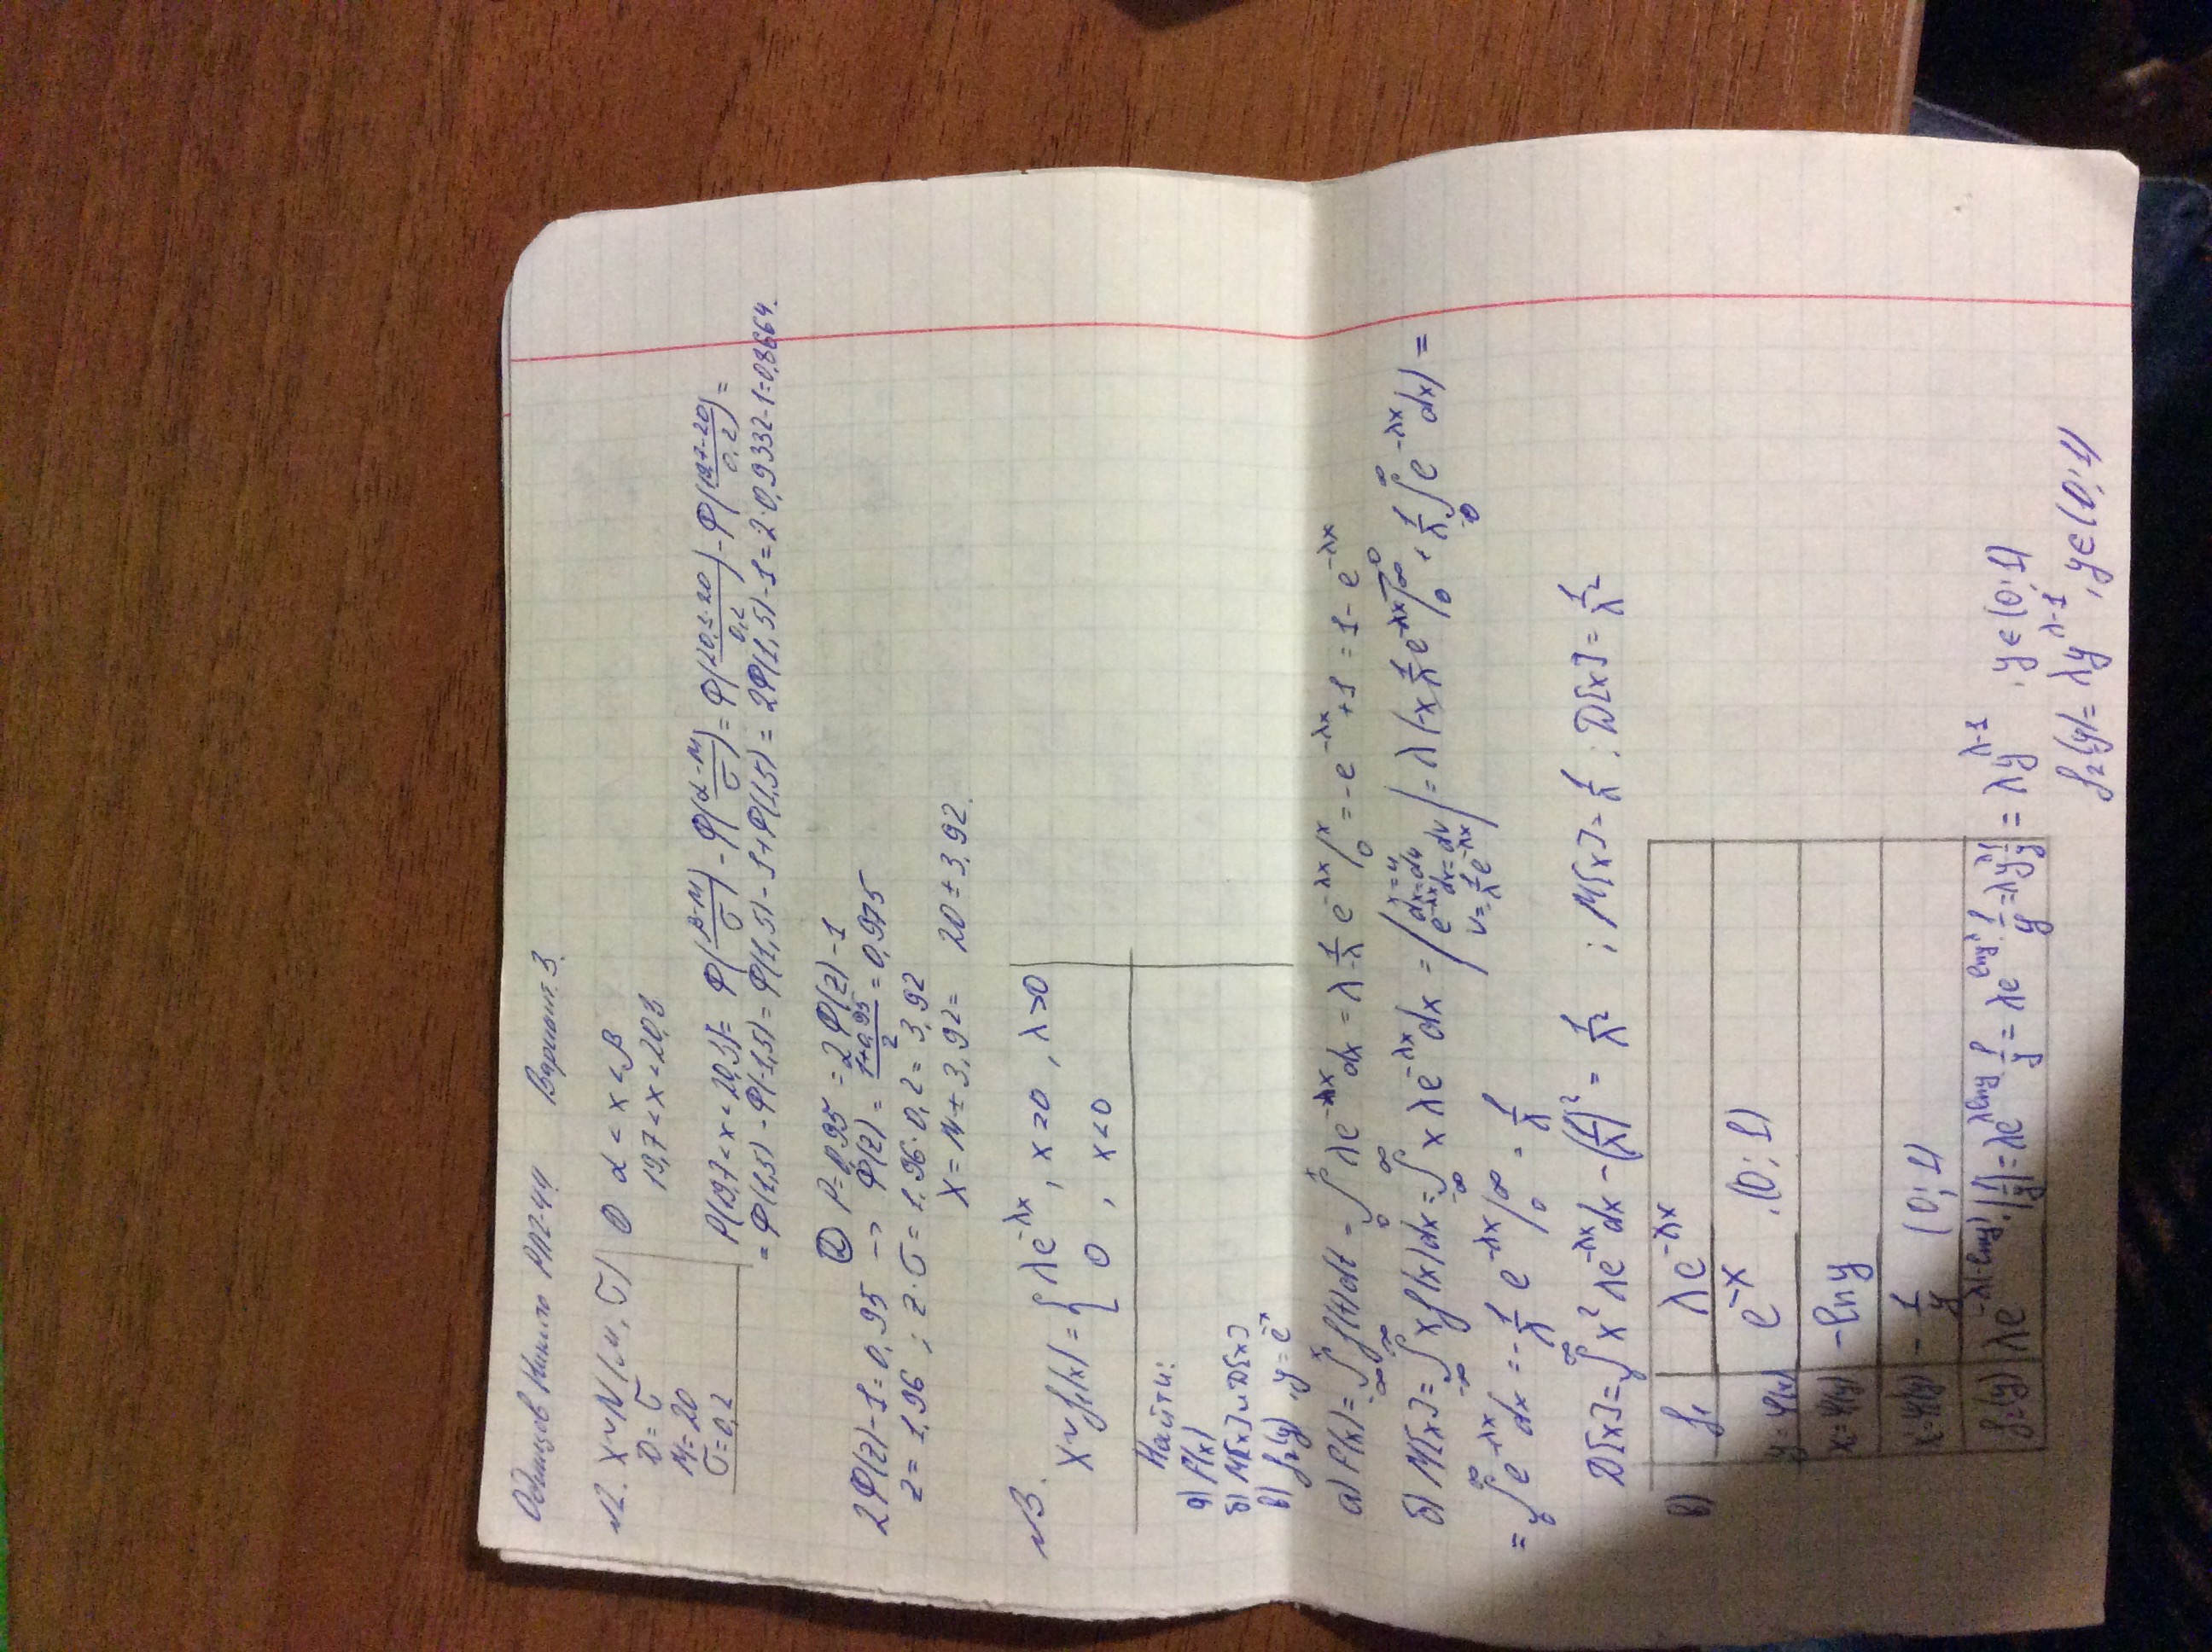 Одинцов Никита РЛ2-44 Вариант 3.
№2. X~N(м, σ)
D = σ
M = 20
σ = 0,2
① α < x < β
19,7 < x < 20,3
P(19,7 < x < 20,3) = Φ((β-M)/σ) - Φ((α-M)/σ) = Φ((20,3-20)/0,2) - Φ((19,7-20)/0,2) =
= Φ(1,5) - Φ(-1,5) = Φ(1,5) - 1 + Φ(1,5) = 2Φ(1,5) - 1 = 2·0,9332 - 1 = 0,8664.
② P = 0,95 = 2Φ(z) - 1
2Φ(z) - 1 = 0,95 -> Φ(z) = (1+0,95)/2 = 0,975
z = 1,96 ; z·σ = 1,96·0,2 = 3,92
X = M ± 3,92 = 20 ± 3,92.
№3.
X ~ f₁(x) = { λe^(-λx), x ≥ 0, λ > 0
0, x < 0
Найти:
а) F(x)
б) M[x] и D[x]
в) f₂(y), y = e^(-x)
а) F(x) = ∫_(-∞)^x f(t)dt = ∫_0^x λe^(-λx)dx = λ·-1/λ e^(-λx)|_0^x = -e^(-λx) + 1 = 1 - e^(-λx)
б) M[x] = ∫_(-∞)^∞ xf(x)dx = ∫_(-∞)^∞ xλe^(-λx)dx = | x = u dx = du e^(-λx)dx = dv v = 1/λ e^(-λx) | = λ(-x 1/λ e^(-λx)|_0^∞ + 1/λ ∫_0^∞ e^(-λx)dx) =
= ∫_0^∞ e^(-λx)dx = -1/λ e^(-λx)|_0^∞ = 1/λ
D[x] = ∫_0^∞ x²λe^(-λx)dx - (1/λ)² = 1/λ² ; M[x] = 1/λ ; D[x] = 1/λ²
в)
f₁ λe^(-λx)
y = φ(x) e^(-x), (0; 1)
x = ψ(y) -ln y
x' = ψ'(y) -1/y (0; 1)
f₂(y) λe^(-λ(-ln y))·|1/y| = λe^(λ ln y) 1/y = λe^(ln y^λ) 1/y = λy^λ 1/y = λy^(λ-1), y ∈ (0; 1)
f₂(y) = λy^(λ-1), y ∈ (0; 1)